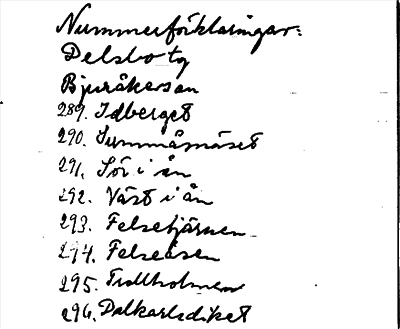 Nummerförklaringar:
Delsbo tg
Bjuråkers sn
289. Idberget
290. Summåsnäset
291. Sör i ån
292. Väst i ån
293. Felsetjärnen
294. Felseåsen
295. Trollholmen
296. Dalkarlsdiket